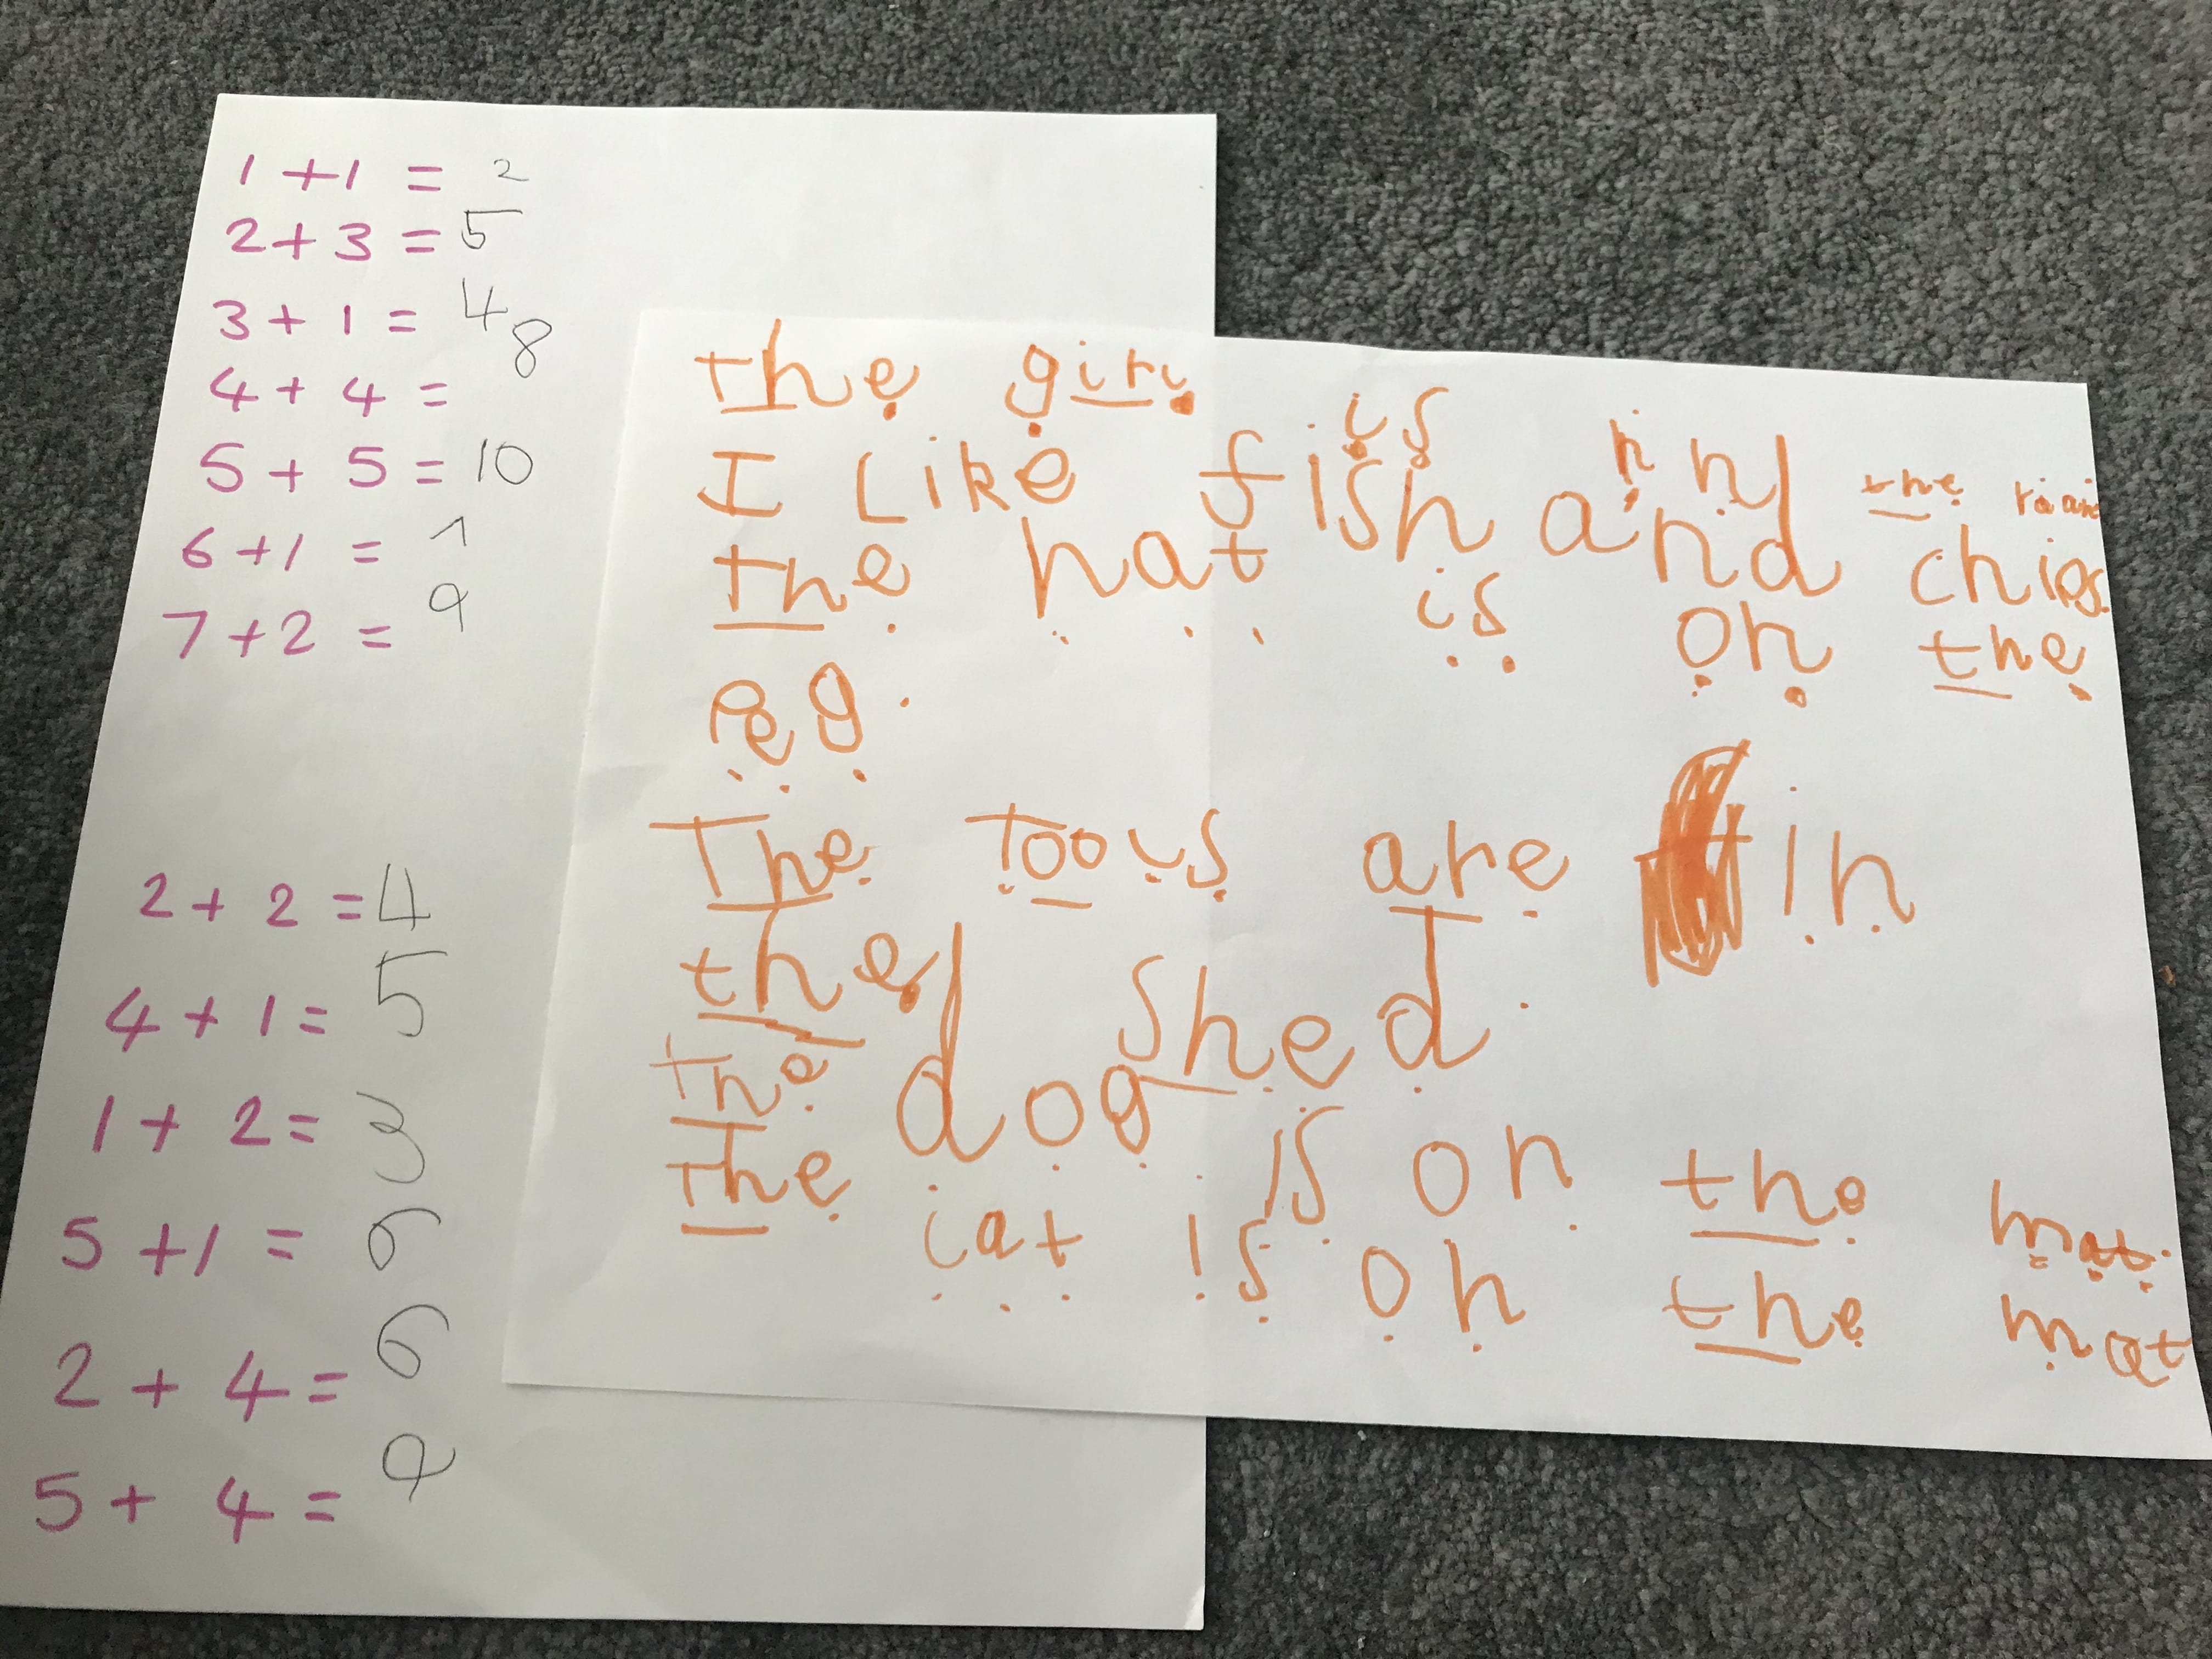 1 + 1 = 2
2 + 3 = 5
3 + 1 = 4
4 + 4 = 8
5 + 5 = 10
6 + 1 = 7
7 + 2 = 9
2 + 2 = 4
4 + 1 = 5
1 + 2 = 3
5 + 1 = 6
2 + 4 = 6
5 + 4 = 9
the girl is in the
I like fish and chips.
the hat is on the
peg.
The tools are in
the shed.
the dog is on the mat.
The cat is on the mat